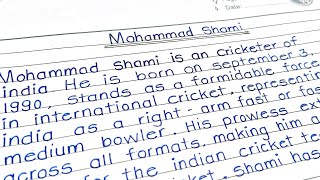 Mohammad Shami
Mohammad Shami is an cricketer of
india He is born on september 3,
1990, stands as a formidable force
in international cricket, representing
india as a right-arm fast or fast
medium bowler. His prowess ext
across all formats, making him a
for the indian cricket te
Shami has